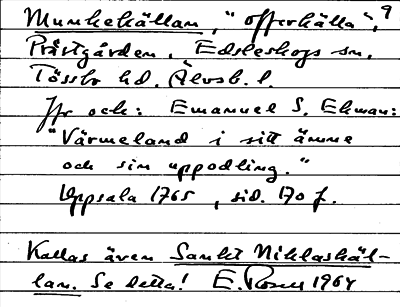 Munkekällan, "offerkälla", 9
Prästgården, Edsleskogs sn,
Tössbo hd. Älvsb. l.
Jfr och: Emanuel S. Ekman:
"Värmeland i sitt ämne
och sin uppodling."
Uppsala 1765, sid. 170 f.
Kallas även Sankt Niklaskäl-
lan. Se detta! E. Rosen 1964